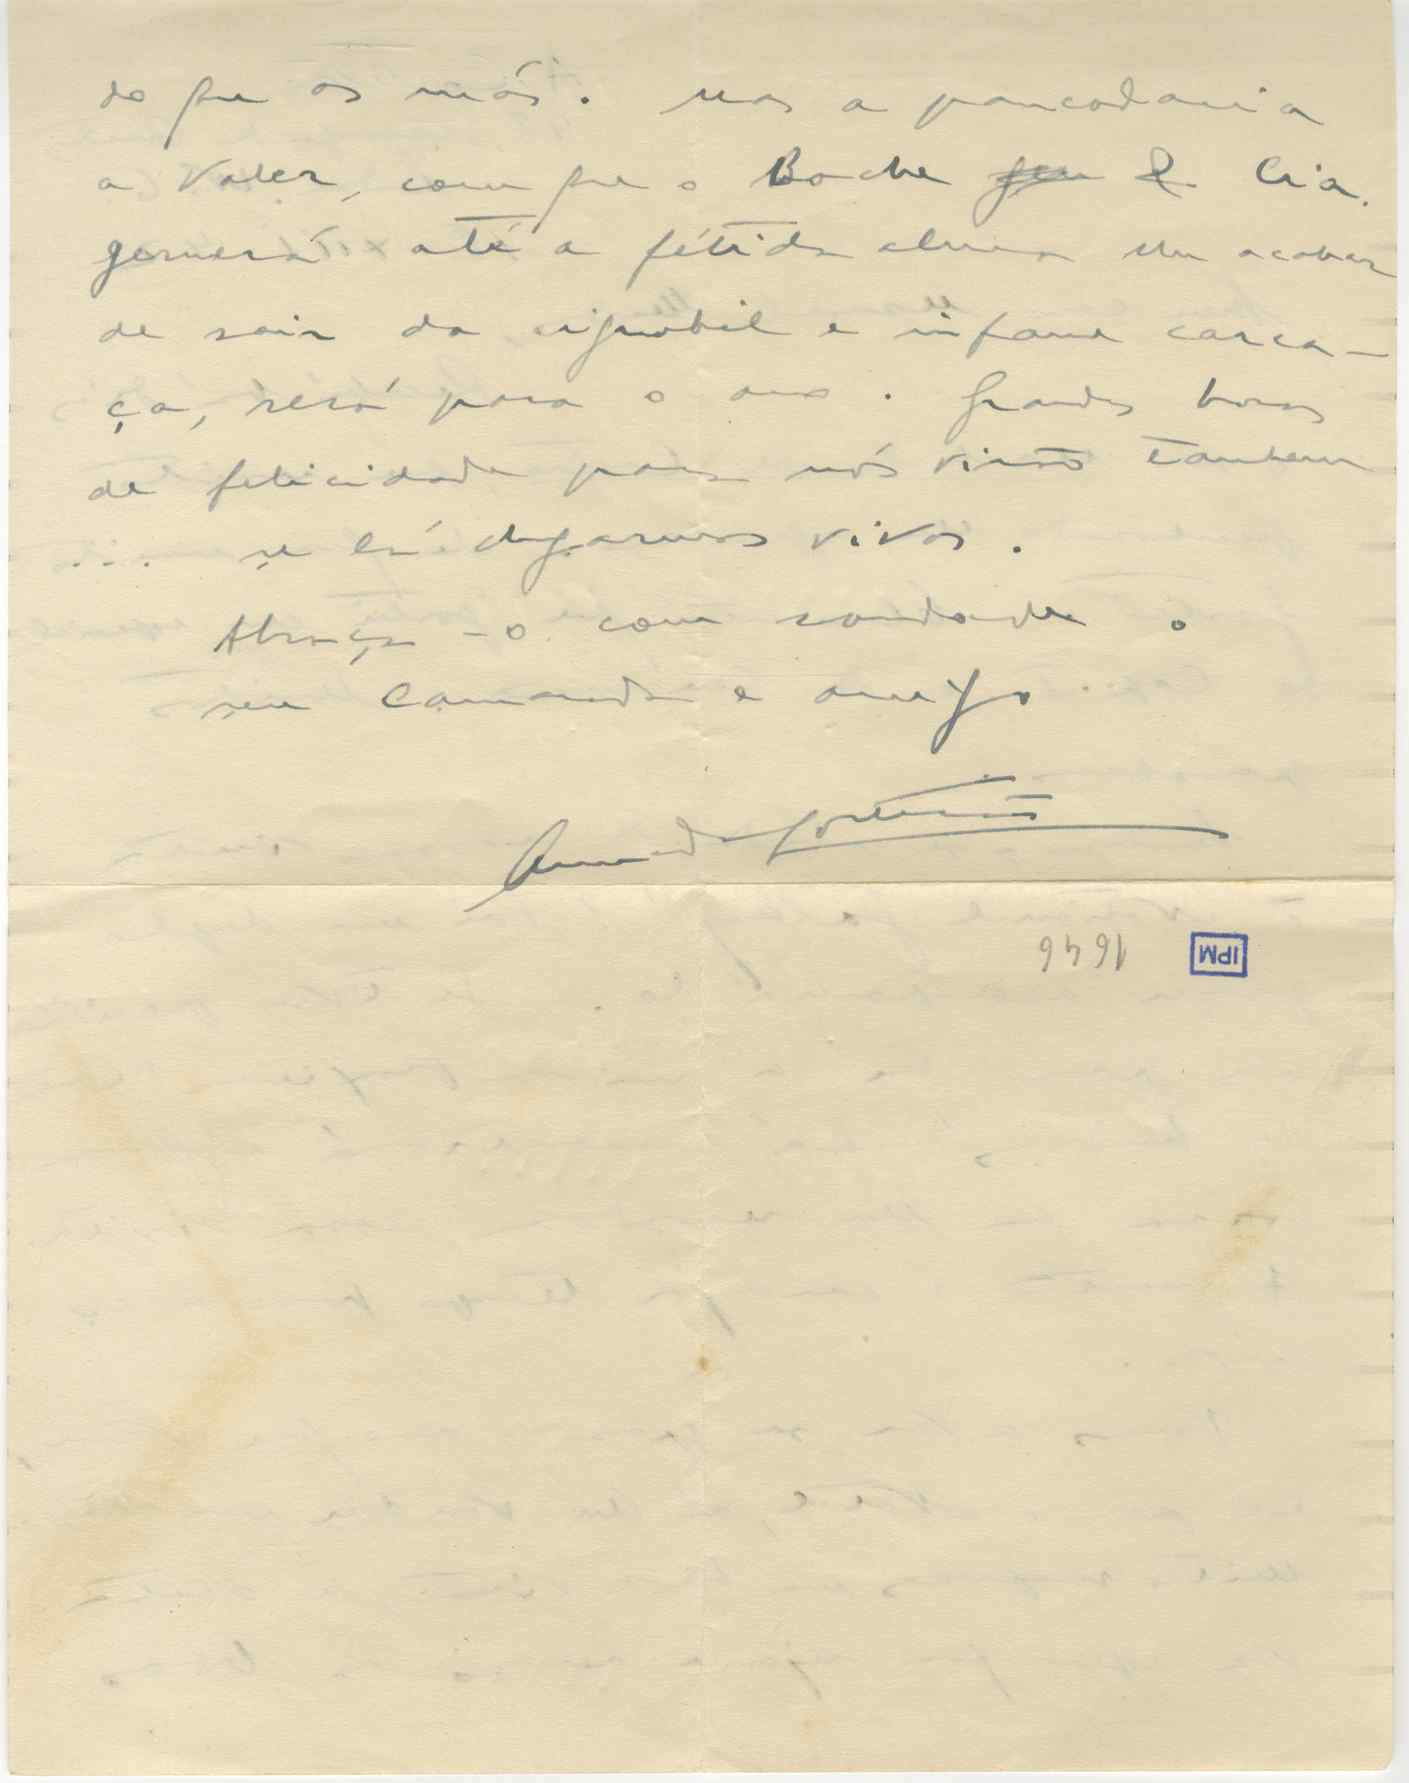 do que os más. Mas a pancadaria
a valer, com que o Boche & Cia.
gemerá até a fétida alma lhe acabar
de sair da ignobil e infame carca-
ça, será para o ano. Grandes horas
de felicidade para nós virão tambem
se lá chegarmos vivos.
Abraça-o com saudade o
seu camarada e amigo
Armando Cortesão
1646
IPM